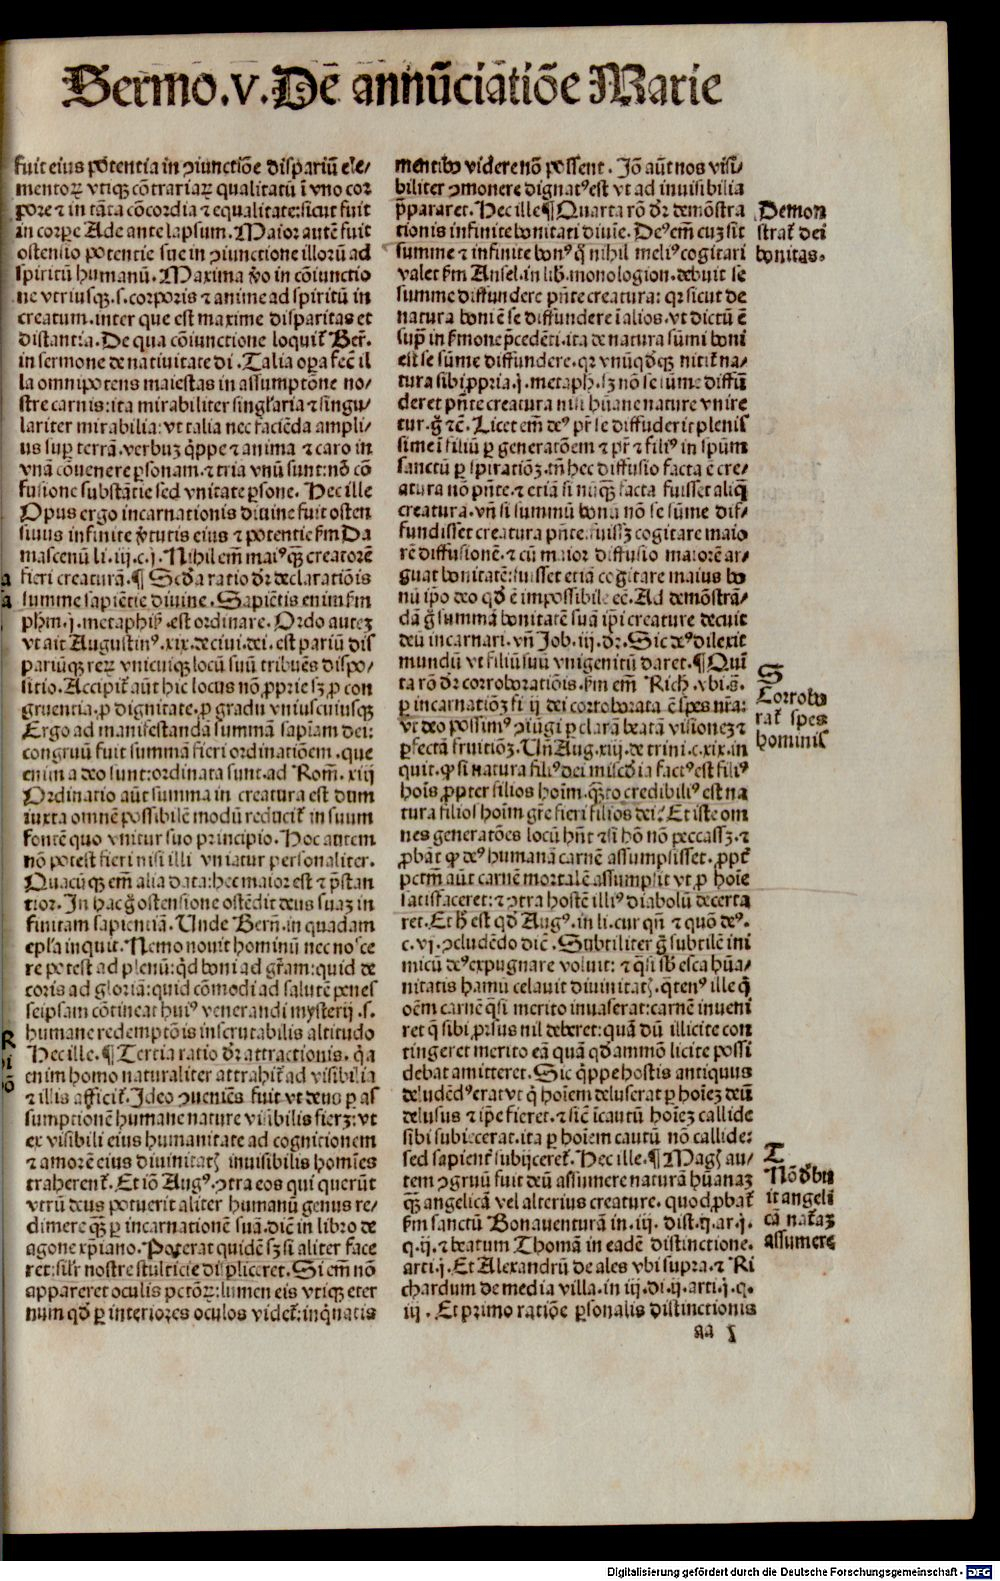 Sermo.v.De annūciatiōe Marie
fuit eius potentia in ꝯiunctiōe dispariū ele/
mentoꝝ vtiqꝫ cōtrariaꝝ qualitatū ī vno cor
pore ⁊ in tāta cōcordia ⁊ equalitate:sicut fuit
in corpe Ade ante lapsum. Maior autē fuit
ostensio potentie sue in ꝯiunctione illorū ad
spiritū humanū. Maxima ꝟo in cōiunctio
ne vtriusqꝫ.s.corporis ⁊ anime ad spiritū in
creatum.inter que est maxime disparitas et
distantia. De qua cōiunctione loquit᷑ Ber̄.
in sermone de natiuitate di. Talia oꝑa fec̄ il
la omnipotens maiestas in assumptōne no/
stre carnis:ita mirabiliter singl̓aria ⁊ singu/
lariter mirabilia: vt talia nec faciēda ampli/
us suꝑ terrā. verbuꝫ q̄ppe ⁊ anima ⁊ caro in
vnā cōuenere ꝑsonam.⁊ tria vnū sunt:nō cō
fusione substātie sed vnitate ꝑsone. Hec ille
Opus ergo incarnationis diuine fuit osten
siuus infinite ꝟtutis eius ⁊ potentie ẜm Da
mascenū li.iij.c.j. Nihil em̄ maiꝰ qꝫ̄ creatorē
fieri creaturā.¶ Scd̓a ratio dr̄ declaratiōis
summe sapiētie diuine. Sapiētis enim ẜm
phm̄.j.metaphiꝭ.est ordinare. Ordo auteꝫ
vt ait Augustinꝰ.xix.de ciui.dei.est pariū dis
pariūqꝫ reꝝ vnicuiqꝫ locū suū tribuēs dispo/
sitio. Accipit᷑ aūt hic locus nō ꝓprie sꝫ ꝓ con
gruentia.ꝓ dignitate.ꝓ gradu vniuscuiusqꝫ
Ergo ad manifestandā summā sapiam̄ dei:
congruū fuit summā fieri ordinatiōem. que
enim a deo sunt:ordinata sunt.ad Rom̄.xiij
Ordinatio aūt summa in creatura est dum
iuxta omnē possibilē modū reducit᷑ in suum
fontē quo vnitur suo principio. Hoc autem
nō potest fieri nisi illi vniatur personaliter.
Quacūqꝫ em̄ alia data:hec maior est ⁊ p̄stan
tior. In hac g̊ ostensione ostēdit deus suaꝫ in
finitam sapientiā. Unde Bern̄.in quadam
epl̓a inquit. Nemo nouit hominū nec nosce
re potest ad plenū:qd̓ boni ad gr̄am:quid de
coris ad gloriā:quid cōmodi ad salutē penes
seipsam cōtineat huiꝰ venerandi mysterij .s.
humane redemptōis inscrutabilis altitudo
Hec ille.¶ Tertia ratio dr̄ attractionis. q̄a
enim homo naturaliter attrahit᷑ ad visibilia
⁊ illis afficit᷑. Ideo ꝯueniēs fuit vt deus ꝑ as
sumptionē humane nature visibilis fieꝫ:vt
ex visibili eius humanitate ad cognitionem
⁊ amorē eius diuinitatꝭ inuisibilis homīes
traherent᷑. Et iō Augꝰ.ꝯtra eos qui querūt
vtrū deus potuerit aliter humanū genus re/
dimere qꝫ̄ ꝑ incarnationē suā.dic̄ in libro de
agone xp̄iano. Poterat quidē sꝫ si aliter face
ret:sil̓r nostre stulticie displiceret. Si em̄ nō
appareret oculis pctōꝝ:lumen eiꝰ vtiqꝫ eter
num qd̓ ꝑ interiores oculos videt᷑:inq̄natis
mentibꝰ videre nō possent. Jō aūt nos visi/
biliter ꝯmonere dignatꝰ est vt ad inuisibilia
p̄pararet. Hec ille¶ Quarta rō dr̄ demōstra
tionis infinite bonitati diuīe. Deꝰ em̄ cuꝫ sit
summe ⁊ infinite bonꝰ q̊ nihil meliꝰ cogitari
valet ẜm Ansel.in lib̓.monologion.debuit se
summe diffundere pn̄te creatura: qꝛ sicut de
natura boni ē se diffundere ī alios.vt dictū ē
suꝑ in ẜmone p̄cedēti.ita de natura sūmi boni
est se sūme diffundere.qꝛ vnūqd̓qꝫ nitit᷑ na/
tura sibi ꝓpria.j.metaph.sꝫ nō se sūme diffū
deret pn̄te creatura nisi hūane nature vnire
tur.g̊ ⁊c̄. Licet em̄ deꝰ pr̄ se diffuderit plenis
sime ī filiū ꝑ generatōem ⁊ pr̄ ⁊ filiꝰ in spūm
sanctū ꝑ spirationꝫ.tn̄ hec diffusio facta ē cre/
atura nō pn̄te.⁊ etiā si nūqꝫ̄ facta fuisset aliq̄
creatura.vn̄ si summū bonū nō se sūme dif/
fundisset creatura pn̄te.fuissꝫ cogitare maio
rē diffusionē.⁊ cū maior diffusio maiorē ar/
guat bonitatē:fuisset etiā cogitare maius bo
nū ip̄o deo qd̓ ē impossibile ec̄. Ad demōstrā/
dā g̊ summā bonitatē suā ip̄i creature decuit
deū incarnari.vn̄ Joh.iij.dr̄. Sic deꝰ dilexit
mundū vt filiū suū vnigenitū daret.¶ Quī
ta rō dr̄ corroboratiōis.ẜm em̄ Rich.vbi.s̄.
ꝑ incarnationꝫ fi ij dei corroborata ē spes nr̄a:
vt deo possimꝰ ꝯiūgi ꝑ clarā beatā visioneꝫ ⁊
ꝑfectā fruitiōꝫ. Un̄ Aug.xiij.de trini.c.xix.in
quit. ꝙ si natura filiꝰ dei mīa factꝰ est filiꝰ
hoīs ꝓpter filios hoīm.qꝫ̄to credibiliꝰ est na
tura filios hoīm gr̄e fieri filios dei? Et iste om
nes generatōes locū hn̄t etsi hō nō peccassꝫ.⁊
ꝓbāt ꝙ deꝰ humanā carnē assumpsisset.ꝓpt᷑
pctm̄ aūt carnē mortalē assumpsit vt ꝓ hoīe
satisfaceret:⁊ ꝯtra hostē illiꝰ diabolū decerta
ret. Et h̓ est qd̓ Augꝰ.in li.cur qn̄ ⁊ quō deꝰ.
c.vj.ꝯcludēdo dic̄. Subtiliter g̊ subtilē ini
micū deꝰ expugnare voluit: ⁊ q̄si sb̓ esca hūa/
nitatis hamū celauit diuinitatꝭ.q̄tenꝰ ille q̄
oēm carnē q̄si merito inuaserat:carnē inueni
ret q̄ sibi ꝓrsus nil deberet:quā dū illicite con
tingeret merito eā quā qd̓āmō licite possi
debat amitteret. Sic q̄ppe hostis antiquus
deludēdꝰ erat vt q̊ hoīem deluserat ꝑ hoīeꝫ deū
delusus ⁊ ip̄e fieret.⁊ sic̄ icautū hoīeꝫ callide
sibi subiecerat.ita ꝑ hoīem cautū nō callide:
sed sapient᷑ subijceret᷑. Hec ille.¶ Magꝭ au/
tem ꝯgruū fuit deū assumere naturā hūanaꝫ
qꝫ̄ angelicā vel alterius creature. quod ꝓbat᷑
ẜm sanctū Bonauenturā in.iij. dist.ij.ar.j.
q.ij.⁊ beatum Thomā in eadē distinctione.
arti.j. Et Alexandrū de ales vbi supra.⁊ Ri
chardum de media villa.in iij.di.ij.arti.j.q.
iij. Et primo ratiōe ꝑsonalis distinctionis
aa j
Demon
strat᷑ dei
bonitas.
S
Corrobo
rat᷑ spes
hominis
T
Nō dꝫbu
it angeli
cā nat᷑aꝫ
assumere
Digitalisierung gefördert durch die Deutsche Forschungsgemeinschaft - DFG